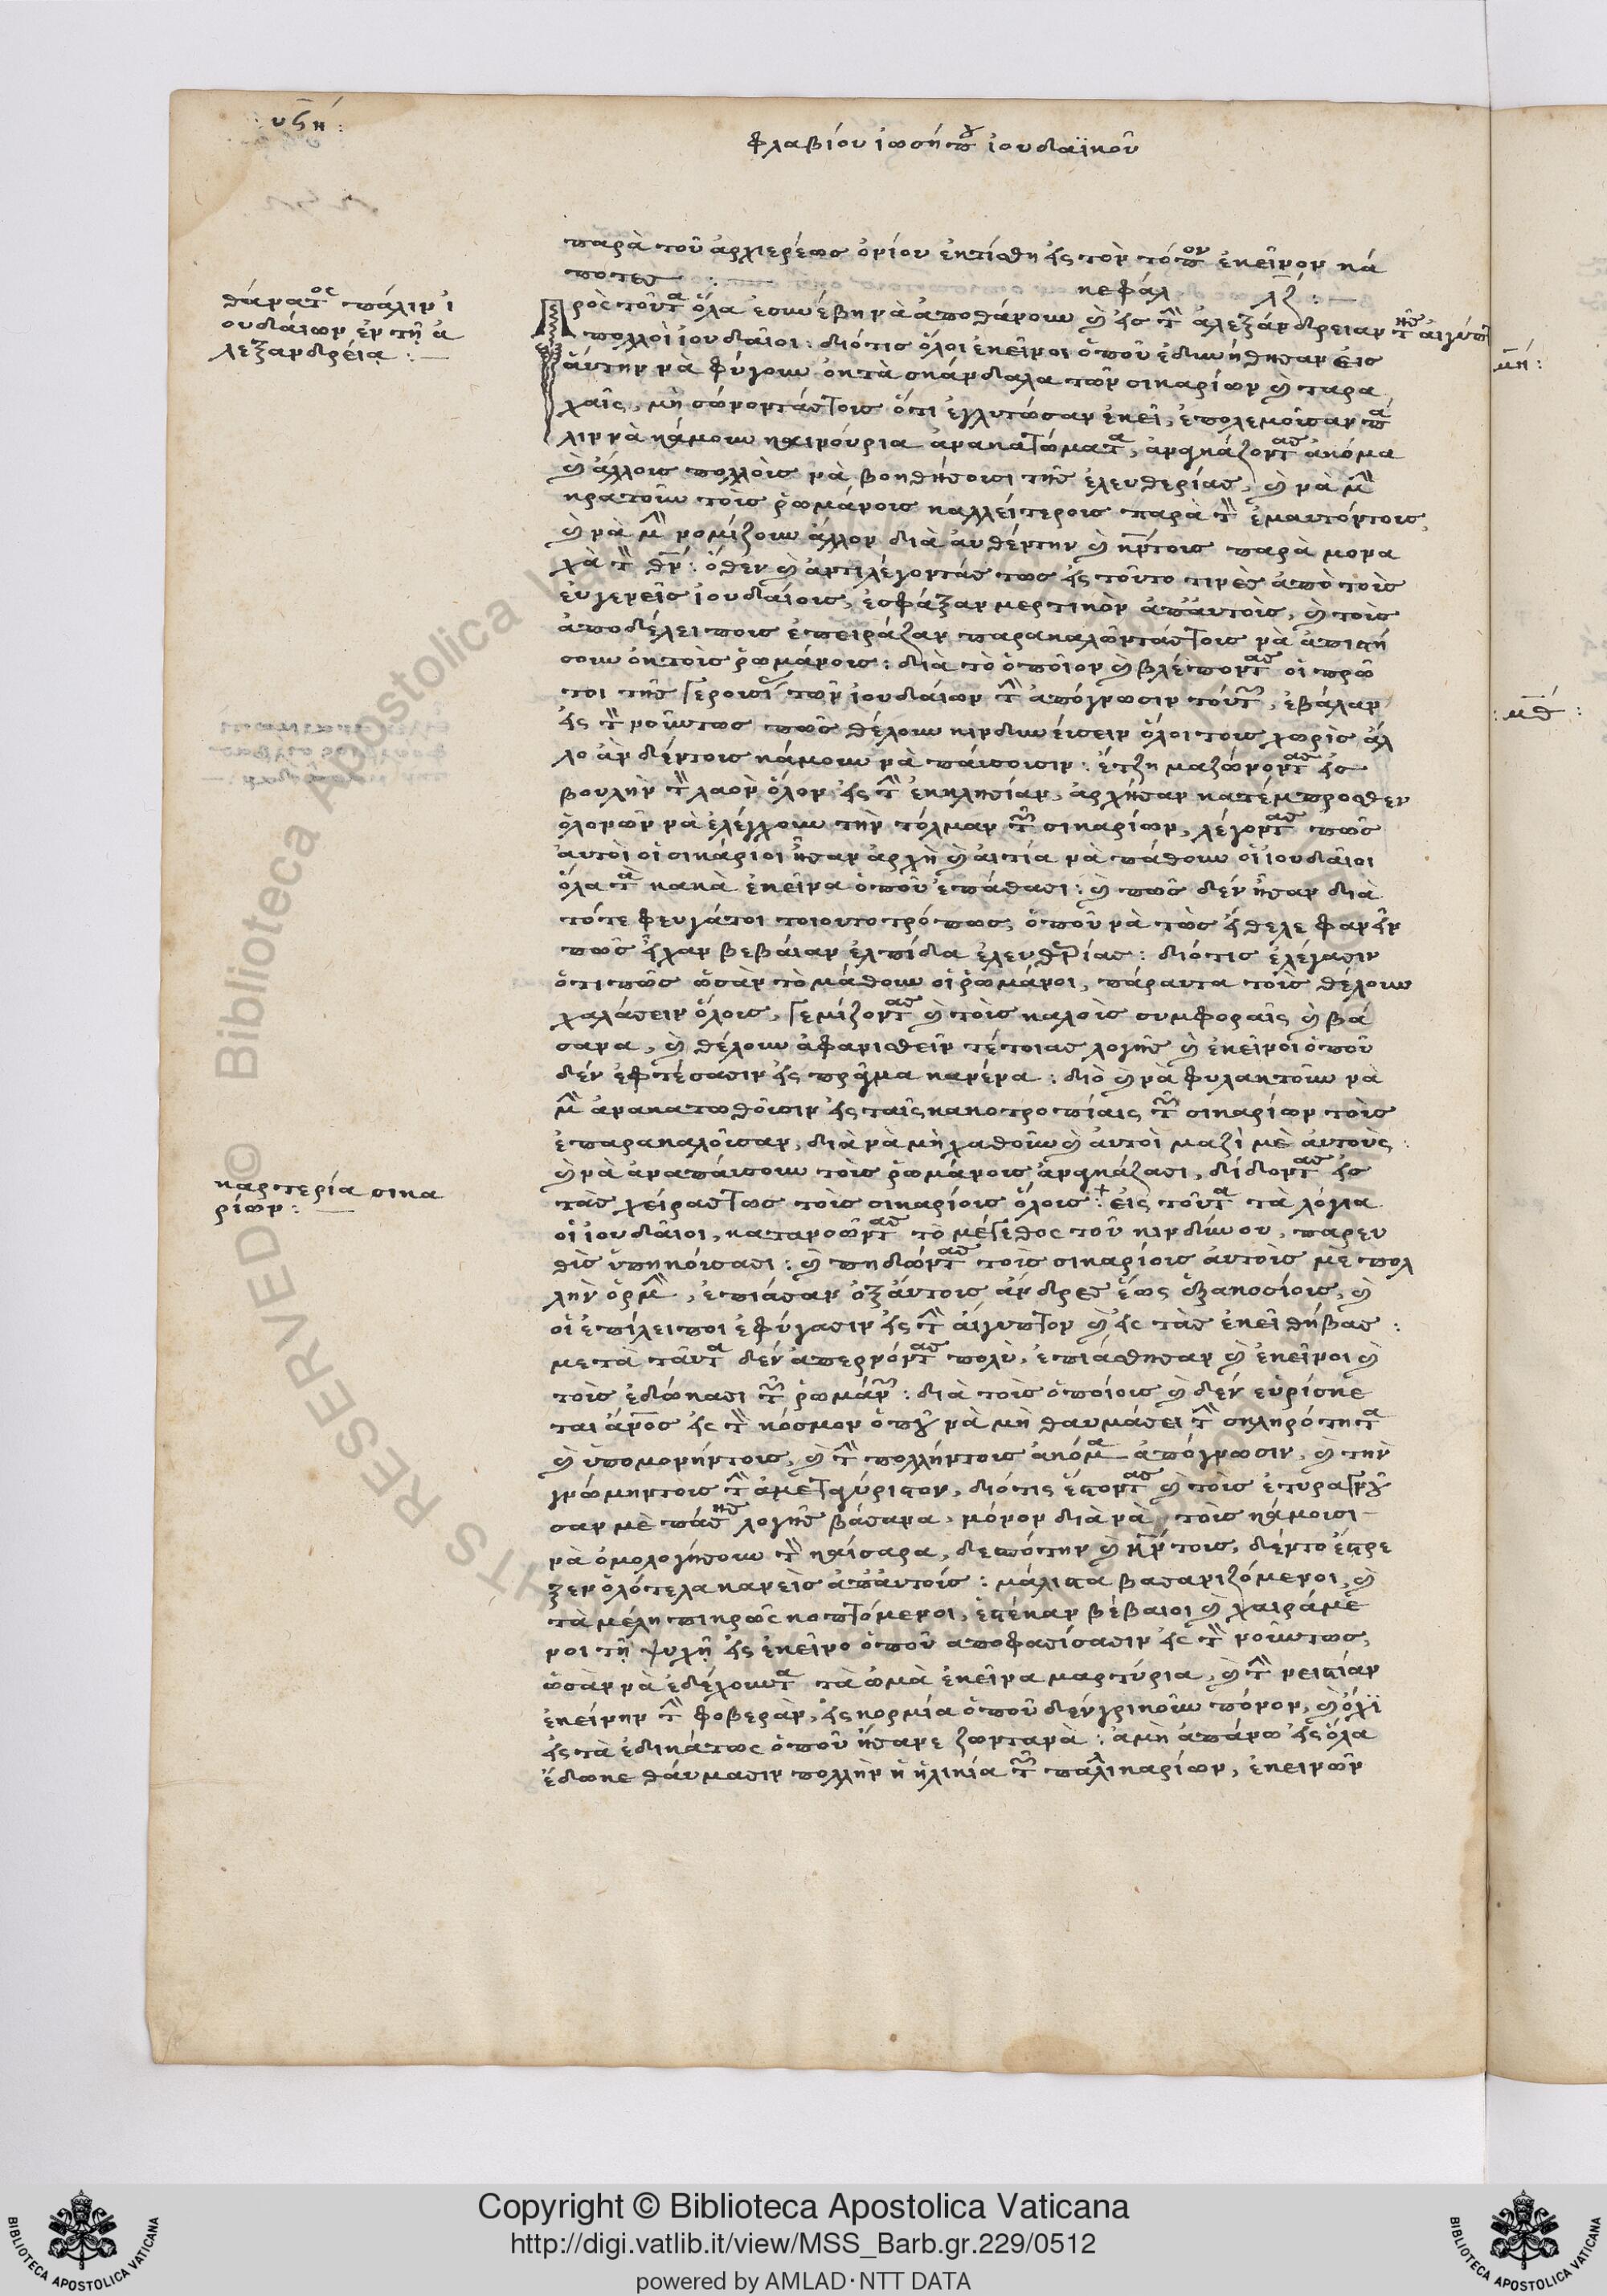 : υϛη :
φλαβίου ἰωσήπου ἰουδαϊκοῦ
παρὰ τοῦ ἀρχιερέως ὀνίου ἐκτίσθη εἰς τὸν τόπον ἐκεῖνον κά
ποτες :—
κεφάλ λζ :—
θάνατος πάλιν ἰ
ουδαίων ἐν τῇ ἀ
λεξανδρείᾳ :—
Πρὸς τοῦτα ὅλα ἐσυνέβη νὰ ἀποθάνουν καὶ εἰς τὴν ἀλεξάνδρειαν τῆς αἰγύπτου
πολλοὶ ἰουδαῖοι : διότις ὅλοι ἐκεῖνοι ὁποῦ ἐδυνήθησαν εἰς
αὐτὴν νὰ φύγουν ἐκ τὰ σκάνδαλα τῶν σικαρίων καὶ ταρα
χαῖς, μὴ σώνοντάς τοις ὅτι ἐγλυτώσαν ἐκεῖ, ἐπολεμοῦσαν πά
λιν νὰ κάμουν καινούρια ἀνακατώματα, ἀναγκάζοντας ἀκόμα
καὶ ἄλλοις πολλοὶς νὰ βοηθήσουσι τῆς ἐλευθερίας, καὶ νὰ μὴν
κρατοῦν τοὶς ῥωμάνοις καλλείτεροις παρὰ τὴν ἐμαυτόντοις,
καὶ νὰ μὴν νομίζουν ἄλλον διὰ αὐθέντην καὶ κύριόντοις παρὰ μονα
χὰ τὸν θεόν : ὅθεν καὶ ἀντιλέγοντάς τως εἰς τοῦτο τινὲς ἀπὸ τοὶς
εὐγενεῖς ἰουδαίοις, ἐσφάξαν μερτικὸν ἀπ' αὐτοὶς, καὶ τοὶς
ἀποδέλειποις ἐπειράζαν παρακαλῶντάς τοις νὰ ἀπιστή
σουν ἐκ τοὶς ῥωμάνοις : διὰ τὸ ὁποῖον καὶ βλέποντας οἱ πρῶ
τοι τῆς γερουσίας τῶν ἰουδαίων τὴν ἀπόγνωσιν τούτων, ἐβάλαν
εἰς τὸν νοῦντως πῶς θέλουν κινδυνεύσειν ὅλοι τοις χωρὶς ἄλ
λο ἂν δέν τοις κάμουν νὰ παύσουσιν : ἔτζη μαζώνοντας εἰς
βουλὴν τὸν λαὸν ὅλον εἰς τὴν ἐκκλησίαν, ἀρχήσαν κατέμπροσθεν
ὁλονῶν νὰ ἐλέγχουν τὴν τόλμαν τῶν σικαρίων, λέγοντας πῶς
αὐτοὶ οἱ σικάριοι ἦσαν ἀρχὴ καὶ αἰτία νὰ πάθουν οἱ ἰουδαῖοι
ὅλα τὰ κακὰ ἐκεῖνα ὁποῦ ἐπάθασι : καὶ πῶς δὲν ἦσαν διὰ
τότε φευγάτοι τοιουτοτρόπως, ὁποῦ νὰ τῶς ἤθελε φανεῖν
πῶς εἶχαν βεβαίαν ἐλπίδα ἐλευθερίας : διότις ἐλέγασιν
ὅτι πῶς ὡσὰν τὸ μάθουν οἱ ῥωμάνοι, πάραυτα τοὶς θέλουν
χαλάσειν ὅλοις, γεμίζοντας καὶ τοὶς καλοὶς συμφοραῖς καὶ βά
σανα, καὶ θέλουν ἀφανισθεῖν τέτοιας λογῆς καὶ ἐκεῖνοι ὁποῦ
δὲν ἐφτέσασιν εἰς πρᾶγμα κανένα : διὸ καὶ νὰ φυλακτοῦν νὰ
μὴν ἀνακατωθοῦσιν εἰς ταῖς κακοτροπίαις τῶν σικαρίων τοὶς
ἐπαρακαλοῦσαν, διὰ νὰ μὴ χαθοῦν καὶ αὐτοὶ μαζὶ μὲ αὐτοὺς :
καρτερία σικα
ρίων :—
καὶ νὰ ἀναπαύσουν τοὶς ῥωμάνοις ἀναγκάζασι, δίδοντας εἰς
τὰς χείρας τως τοὶς σικαρίοις ὅλοις :+ εἰς τοῦτα τὰ λόγια
οἱ ἰουδαῖοι, κατανοῶντας τὸ μέγεθος τοῦ κινδύνου, παρευ
θὶς ὑπηκόυσασι : καὶ πηδῶντας τοὶς σικαρίοις αὐτοὶς μὲ πολ
λὴν ὁρμὴν, ἐπιάσαν ἐξ αὐτοις ἄνδρες ἕως ἑξακοσίοις, καὶ
οἱ ἐπίλειποι ἐφύγασιν εἰς τὴν αἴγυπτον καὶ εἰς τὰς ἐκεῖ θήβας :
μετὰ ταῦτα δὲν ἀπερνόντας πολὺ, ἐπιάσθησαν καὶ ἐκεῖνοι καὶ
τοὶς ἐδώκασι τῶν ῥωμάνων : διὰ τοὶς ὁποίοις καὶ δὲν εὑρίσκε
ται ἄνθρωπος εἰς τὸν κόσμον ὁποῦ νὰ μὴ θαυμάσει τὴν σκληρότητα
καὶ ὑπομονήντοις, καὶ τὴν πολλήντοις ἀκόμα ἀπόγνωσιν, καὶ τὴν
γνώμηντοις τὴν ἀμεταγύριστον, διότις ἔστοντας καὶ τοὶς ἐτυραγνοῦ
σαν μὲ πάσης λογῆς βάσανα, μόνον διὰ νὰ τοὶς κάμουσι
νὰ ὁμολογήσουν τὸν καίσαρα, δεσπότην καὶ κύριόν τοις, δέν το ἔστρε
ξεν ὁλότελα κανεὶς ἀπ' αὐτοὶς : μάλιστα βασανιζόμενοι, καὶ
τὰ μέλη πικρῶς κοπτόμενοι, ἐστέκαν βέβαιοι καὶ χαιράμε
νοι τῇ ψυχῇ εἰς ἐκεῖνο ὁποῦ αποφασίσασιν εἰς τὸν νοῦντως,
ὡσὰν νὰ ἐδέχουντα τὰ ὠμὰ ἐκεῖνα μαρτύρια, καὶ τὴν νειστίαν
ἐκείνην τὴν φοβερὰν, εἰς κορμία ὁποῦ δὲν γρικοῦν πόνον, καὶ ὄχι
εἰς τὰ ἐδικάτως ὁποῦ ἤσανε ζωντανὰ : ἀμὴ ἀπάνω εἰς ὅλα
ἔδωκε θαύμασιν πολλὴν ἡ ἡλικία τῶν παλικαρίων, ἐκεινῶν
μη :
: μθ :
Copyright © Biblioteca Apostolica Vaticana
http://digi.vatlib.it/view/MSS_Barb.gr.229/0512
powered by AMLAD·NTT DATA
BIBLIOTECA APOSTOLICA VATICANA
BIBLIOTECA APOSTOLICA VATICANA